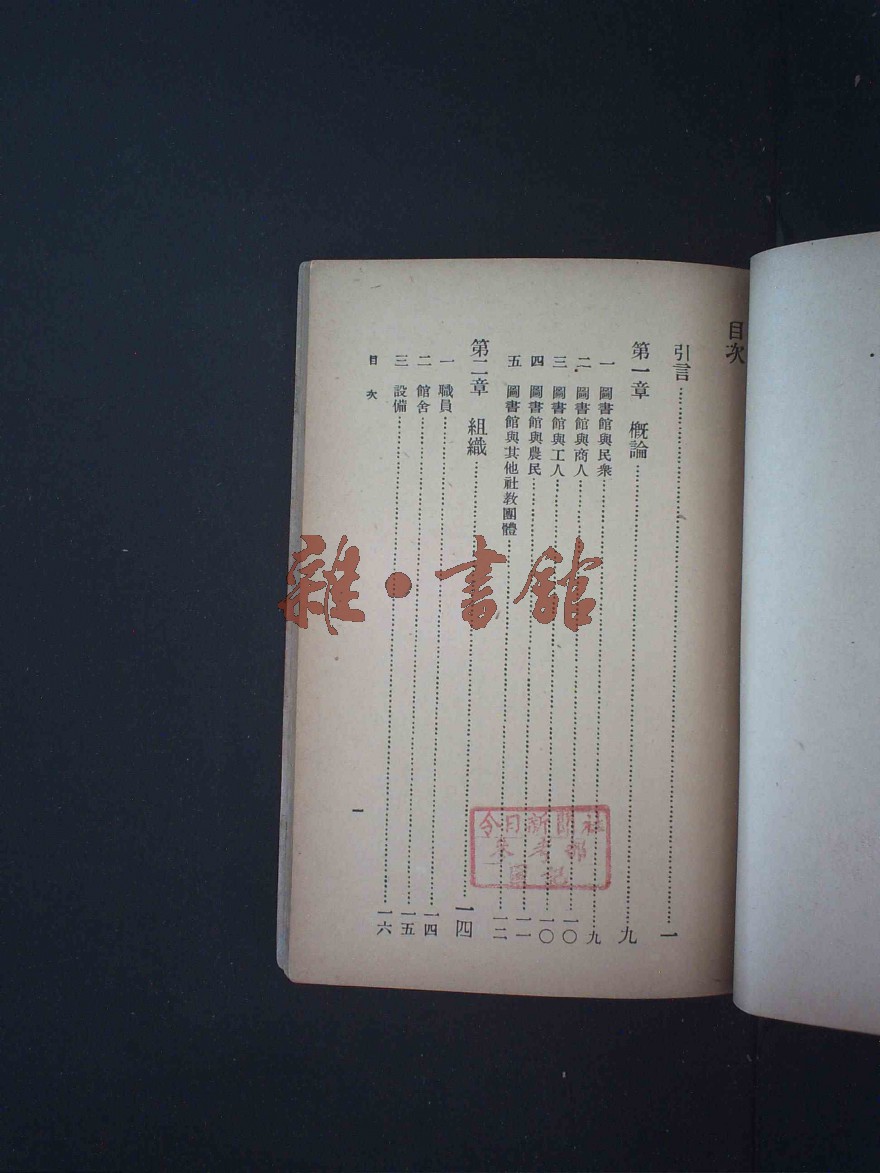 目次
引言……一
第一章　概論……九
一　圖書館與民衆……九
二　圖書館與商人……一〇
三　圖書館與工人……一〇
四　圖書館與農民……一一
五　圖書館與其他社教團體……一二
第二章　組織……一四
一　職員……一四
二　館舍……一五
三　設備……一六
目次
一
雜·書館
今日新聞社
圖記